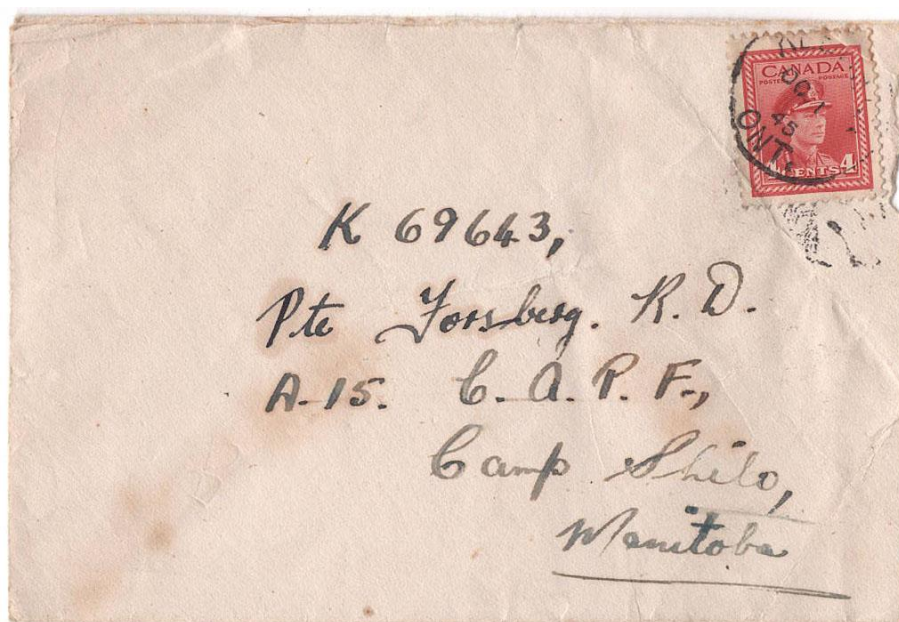 CANADA
POSTES POSTAGE
OC 1
45
ONT.
4 CENTS 4
K 69643,
Pte Forsberg. R. D.
A-15. C. A. P. F.,
Camp Shilo,
Manitoba